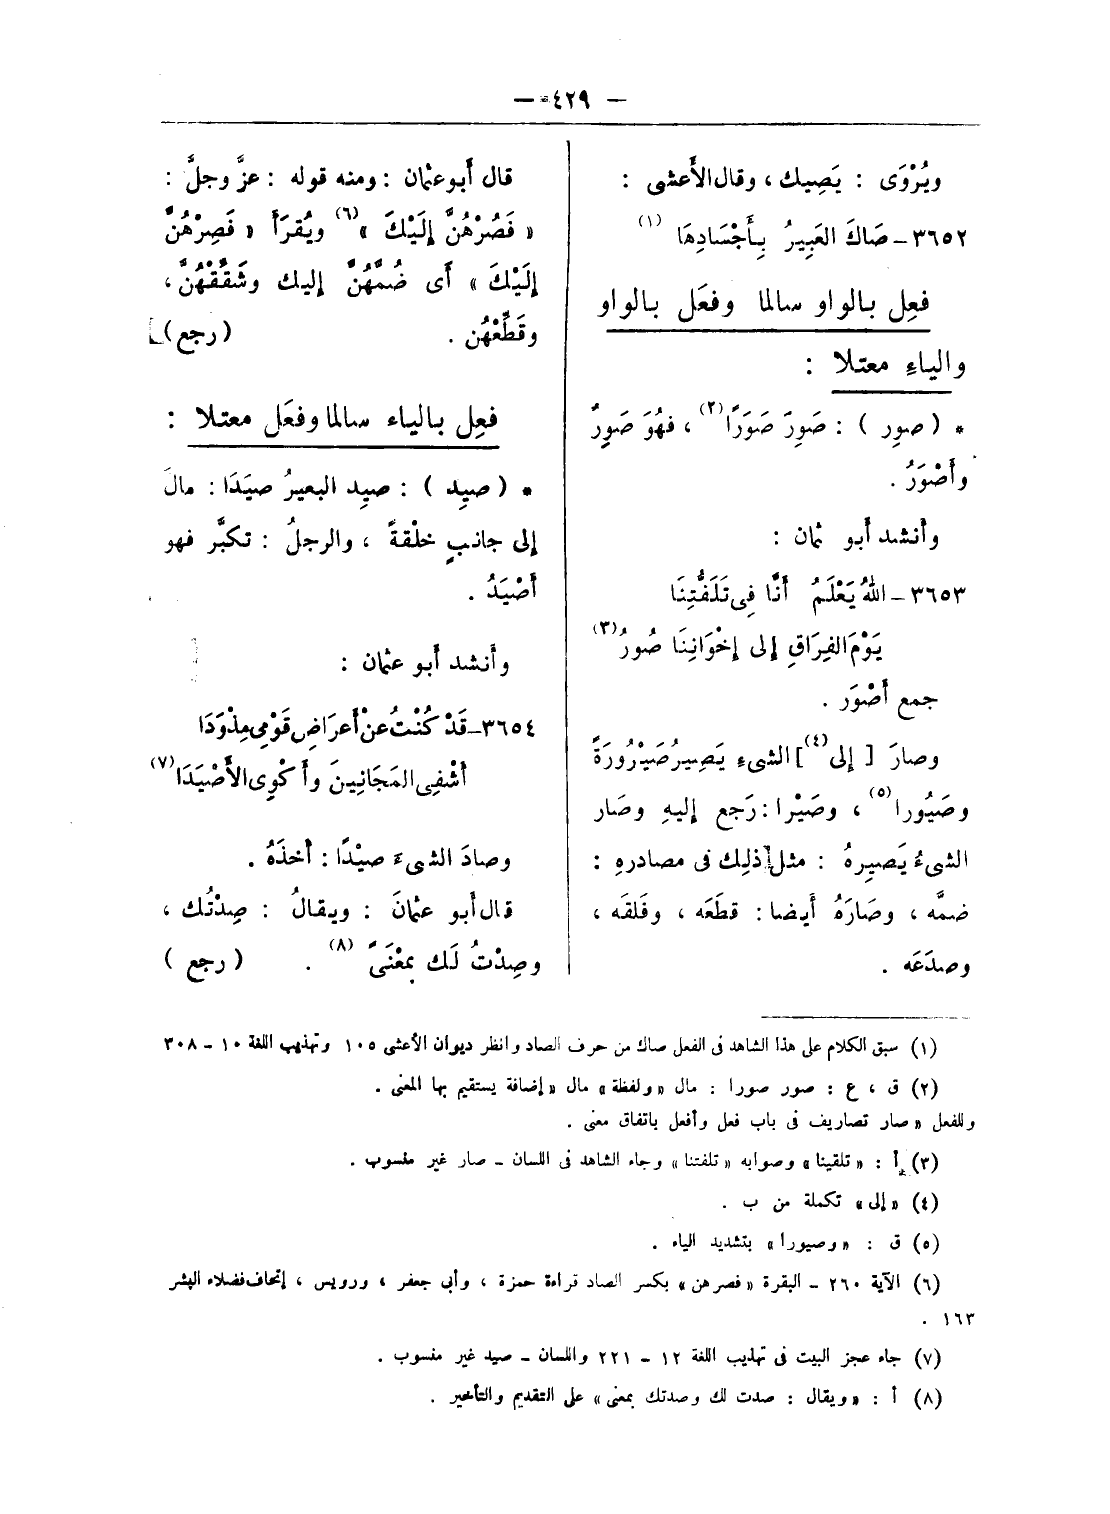 — ٤٢٩ —
ويُرْوَى : يَصِيك ، وقال الأَعشى :
٣٦٥٢ – صَاكَ العَبِيرُ بِأَجْسَادِهَا (١)
فعِل بالواو سالما وفعَل بالواو
والياءِ معتلا :
* ( صوِر ) : صَوِرَ صَوَرًا (٢) ، فهُوَ صَوِرٌ
وأَصْوَرُ .
وأنشد أبو ثمان :
٣٦٥٣ – اللهُ يَعْلَمُ أَنَّا فِى تَلَفُّتِنَا
يَوْمَ الفِرَاقِ إلى إخْوَانِنَا صُورُ (٣)
جمع أَصْوَر .
وصارَ [ إلى (٤) ] الشىءِ يَصِيرُ صَيْرُورَةً
وصَيُورا (٥) ، وصَيْرا : رَجع إليهِ وصَار
الشىءُ يَصِيرهُ : مثل ذلِك فى مصادرهِ :
ضمَّه ، وصَارَهُ أيضا : قطَعَه ، وفَلقَه ،
وصدَعَه .
قال أَبو عثمان : ومنه قوله : عزَّ وجلَّ :
« فَصُرْهُنَّ إلَيْكَ » (٦) ويُقرَأَ « فَصِرْهُنَّ
إلَيْكَ » أى ضُمَّهُنَّ إليك وشَقِّقْهُنَّ ،
وقَطِّعْهُن . ( رجع )
فعِل بالياء سالما وفعَل معتلا :
* ( صيِد ) : صيِد البعيرُ صيَدَا : مالَ
إلى جانبٍ خلْقةً ، والرجلُ : تكبَّر فهو
أَصْيَدُ .
وأنشد أبو عثمان :
٣٦٥٤ – قَدْ كُنْتُ عنْ أَعرَاضِ قَوْمِى مِذْوَدَا
أَشْفِى المَجَانِينَ وأَكْوِى الأَصْيَدَا (٧)
وصادَ الشىءَ صيْدًا : أخذَهُ .
قال أبو عثمانَ : ويقالُ : صِدْتُك ،
وصِدْتُ لَك بمَعْنىً (٨) . ( رجع )
(١) سبق الكلام على هذا الشاهد فى الفعل صاك من حرف الصاد وانظر ديوان الأعشى ١٠٥ وتهذيب اللغة ١٠ – ٣٠٨
(٢) ق ، ع : صور صورا : مال « ولفظة » مال « إضافة يستقيم بها المعنى .
وللفعل « صار تصاريف فى باب فعل وأفعل باتفاق معنى .
(٣) أ : « تلقينا » وصوابه « تلفتنا » وجاء الشاهد فى اللسان – صار غير منسوب .
(٤) « إلى » تكملة من ب .
(٥) ق : « وصيورا » بتشديد الياء .
(٦) الآية ٢٦٠ – البقرة « فصرهن » بكسر الصاد قراءة حمزة ، وأبى جعفر ، ورويس ، إتحاف فضلاء البشر
١٦٣ .
(٧) جاء عجز البيت فى تهذيب اللغة ١٢ – ٢٢١ واللسان – صيد غير منسوب .
(٨) أ : « ويقال : صدت لك وصدتك بمعنى » على التقديم والتأخير .